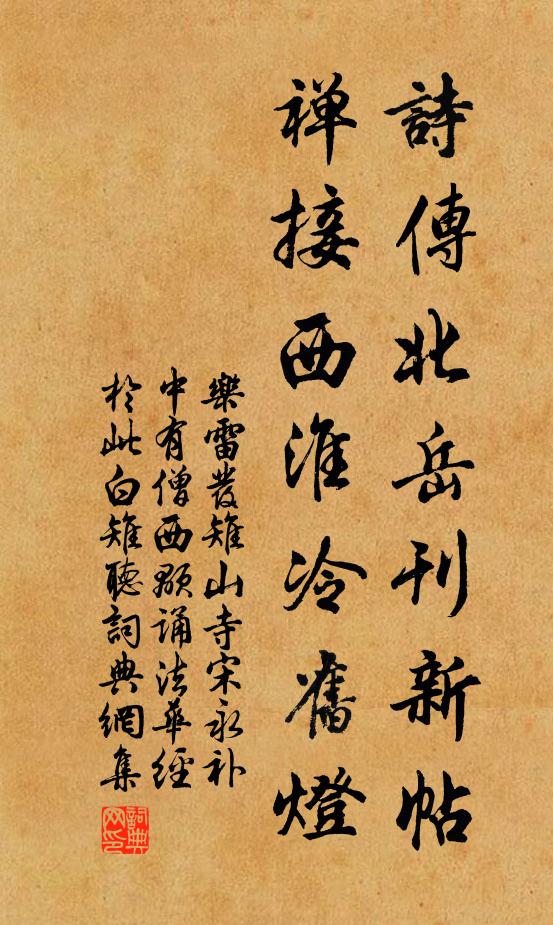 詩傳北岳刊新帖
禅接西淮冷舊燈
樂雷發雉山寺宋永补
中有僧西顥誦法華經
於此白雉聽詞典網集
詞典网印